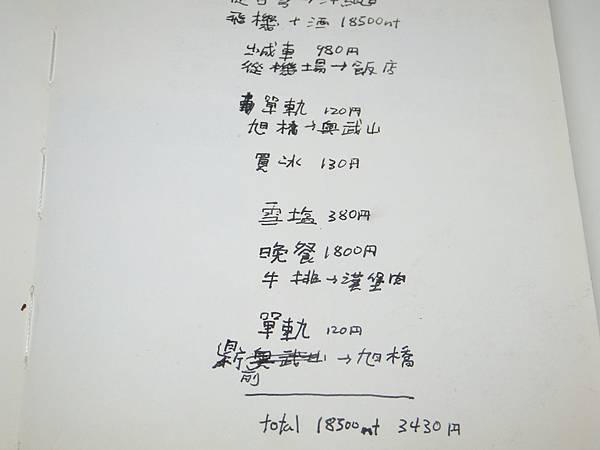 飛機 + 酒 18500nt
980円
從機場→飯店
單軌 120円
旭橋→奧武山
買冰 130円
雪塩 380円
晚餐 1800円
牛排→漢堡肉
單軌 120円
奧武山→旭橋
前
total 18500nt 3430円